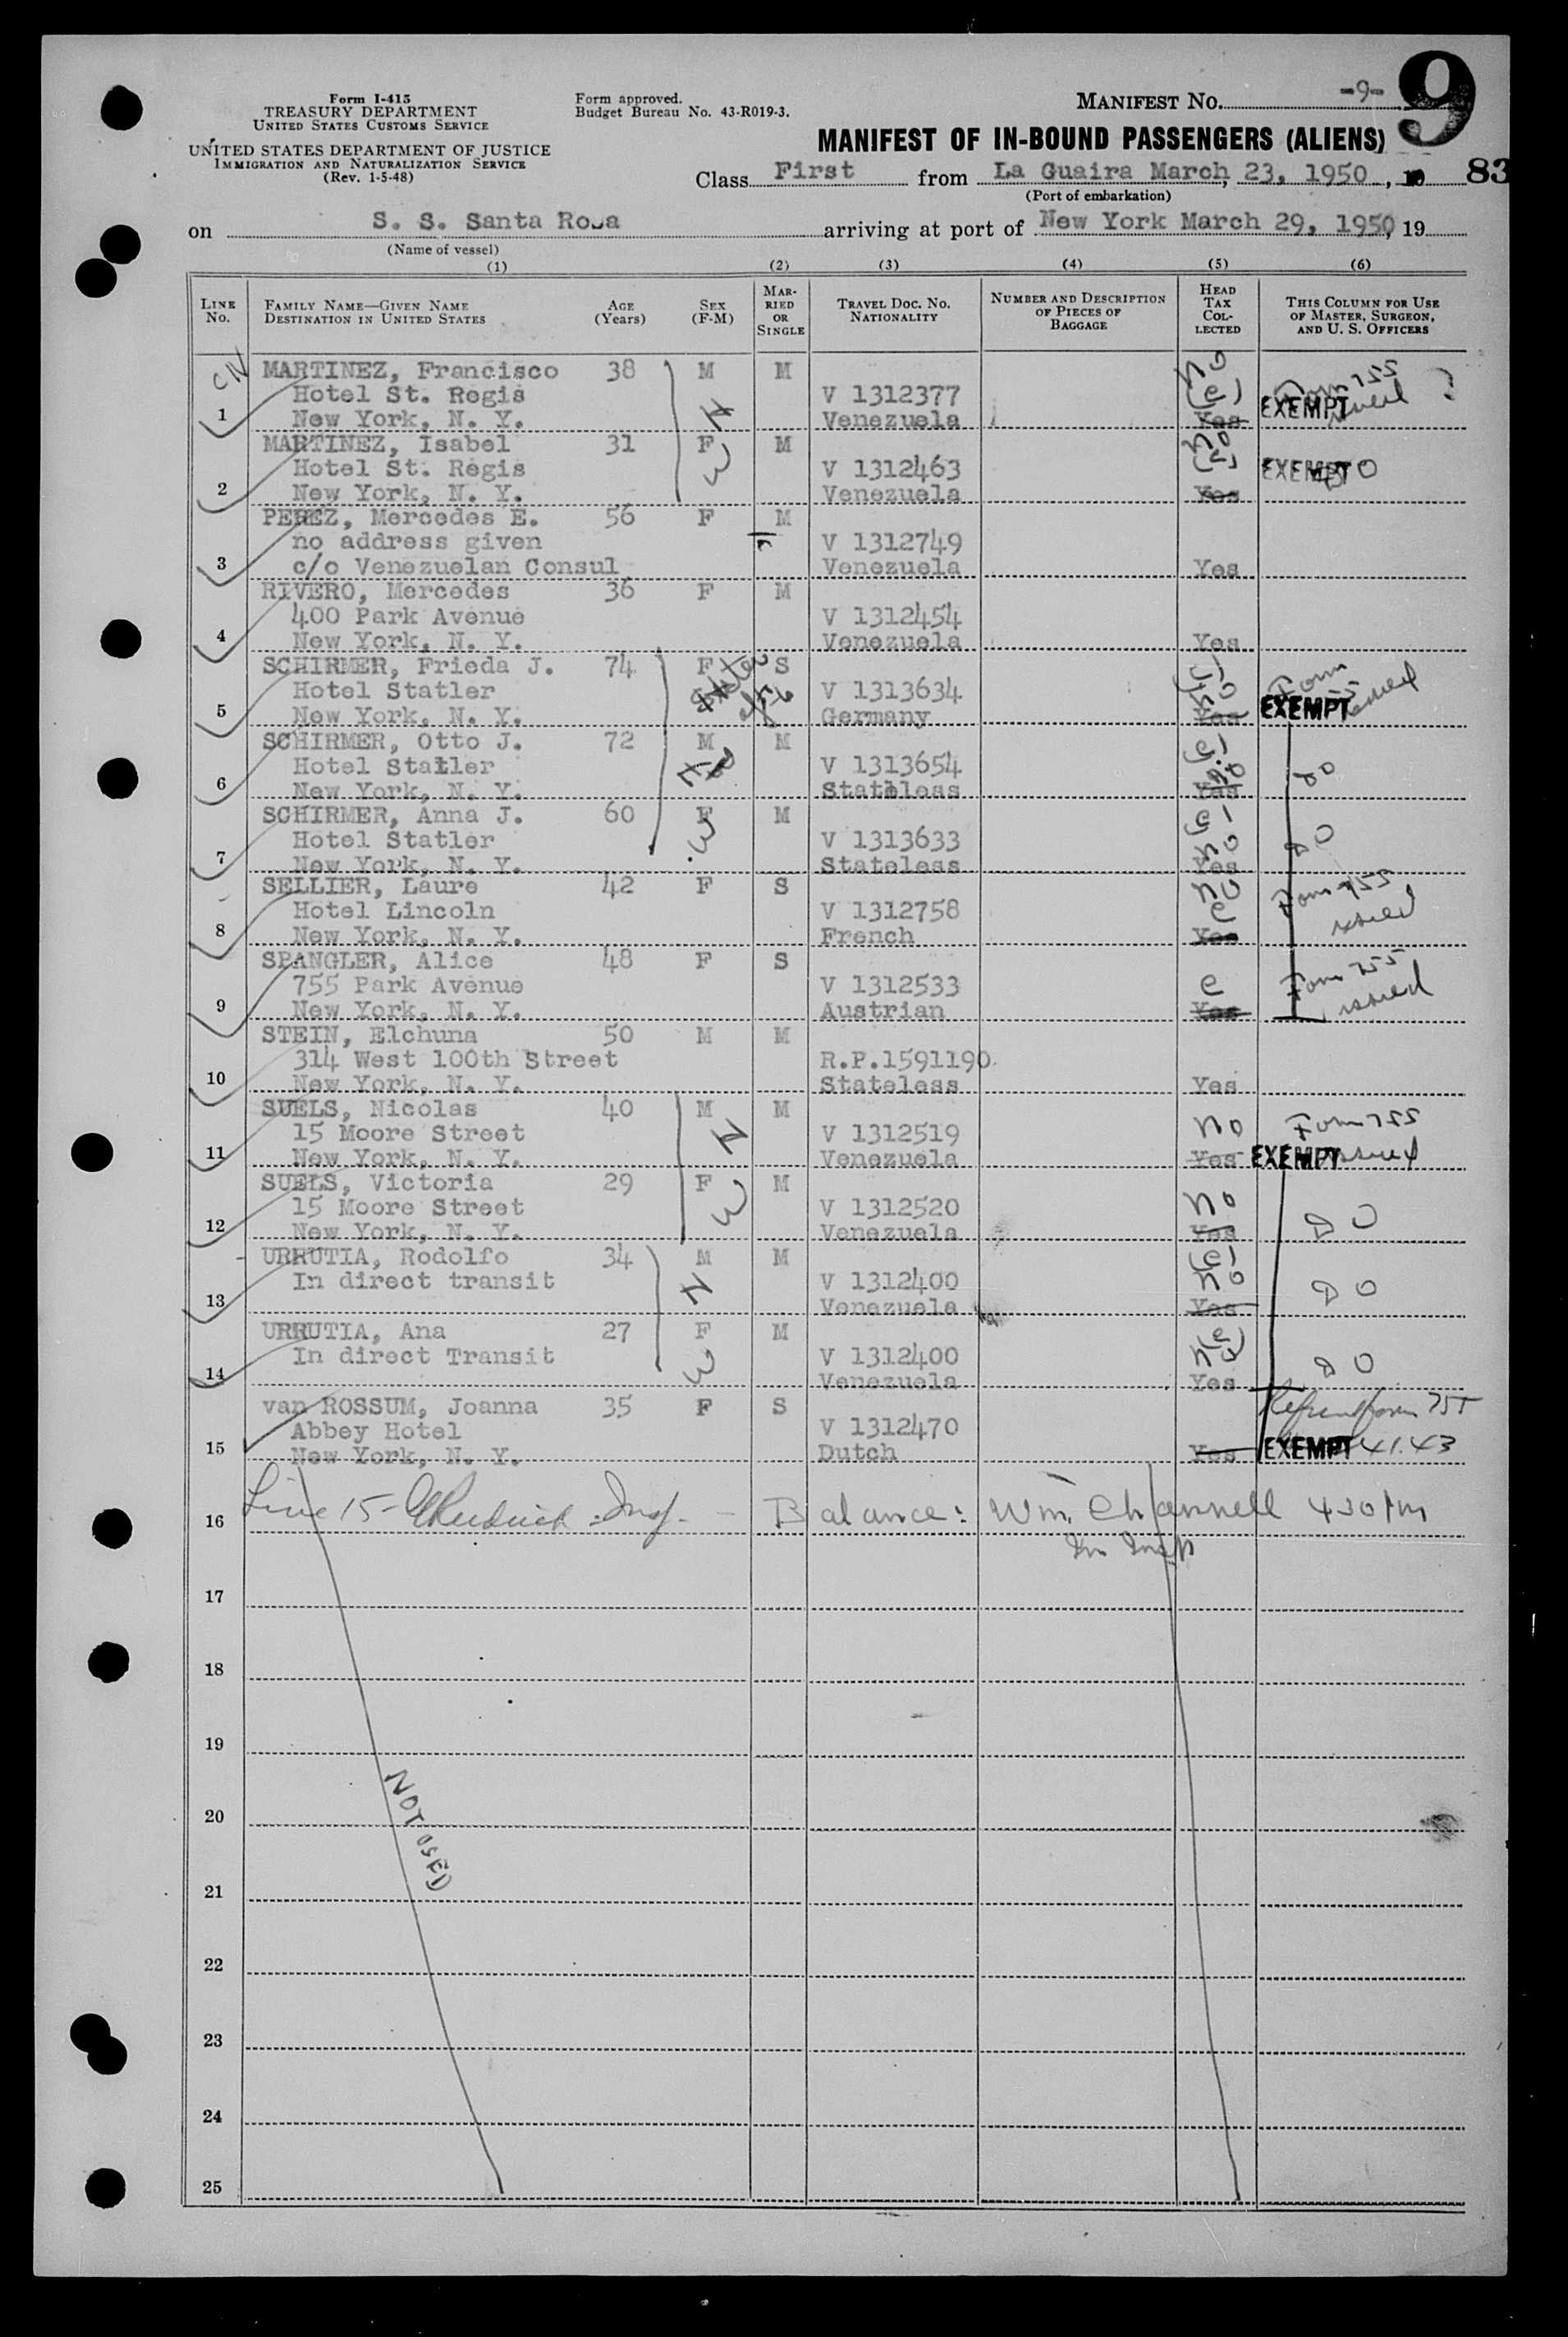 Form I-415
TREASURY DEPARTMENT
UNITED STATES CUSTOMS SERVICE
UNITED STATES DEPARTMENT OF JUSTICE
IMMIGRATION AND NATURALIZATION SERVICE
(Rev. 1-5-48)
Form approved.
Budget Bureau No. 43-R019-3.
MANIFEST No. -9- 9
MANIFEST OF IN-BOUND PASSENGERS (ALIENS)
Class First from La Guaira March, 23, 1950, 83
(Port of embarkation)
on S. S. Santa Rosa arriving at port of New York March 29, 1950, 19
(Name of vessel)
(1) (2) (3) (4) (5) (6)
LINE No. FAMILY NAME—GIVEN NAME DESTINATION IN UNITED STATES AGE (Years) SEX (F-M) MARRIED OR SINGLE TRAVEL DOC. NO. NATIONALITY NUMBER AND DESCRIPTION OF PIECES OF BAGGAGE HEAD TAX COLLECTED THIS COLUMN FOR USE OF MASTER, SURGEON, AND U. S. OFFICERS
MARTINEZ, Francisco 38 M M no
Hotel St. Regis V 1312377 (e) Form 755 issued ?
1 New York, N. Y. Venezuela Yes EXEMPT
MARTINEZ, Isabel 31 F M no
Hotel St. Regis V 1312463 (e) EXEMPT DO
2 New York, N. Y. Venezuela Yes
PEREZ, Mercedes E. 56 F M
no address given V 1312749
3 c/o Venezuelan Consul Venezuela Yes
RIVERO, Mercedes 36 F M
400 Park Avenue V 1312454
4 New York, N. Y. Venezuela Yes
SCHIRMER, Frieda J. 74 F sister S (e)
Hotel Statler V 1313634 no Form 755 issued
5 New York, N. Y. Germany Yes EXEMPT
SCHIRMER, Otto J. 72 M M (e)
Hotel Statler V 1313654 no DO
6 New York, N. Y. Stateless Yes
SCHIRMER, Anna J. 60 F M (e)
Hotel Statler V 1313633 no DO
7 New York, N. Y. Stateless Yes
SELLIER, Laure 42 F S no
Hotel Lincoln V 1312758 e Form 755 issued
8 New York, N. Y. French Yes
SPANGLER, Alice 48 F S
755 Park Avenue V 1312533 e Form 755 issued
9 New York, N. Y. Austrian Yes
STEIN, Elchuna 50 M M
314 West 100th Street R.P.1591190
10 New York, N. Y. Stateless Yes
SUELS, Nicolas 40 M M
15 Moore Street V 1312519 no Form 755 issued
11 New York, N. Y. Venezuela Yes EXEMPT
SUELS, Victoria 29 F M
15 Moore Street V 1312520 no DO
12 New York, N. Y. Venezuela Yes
URRUTIA, Rodolfo 34 M M (e)
In direct transit V 1312400 no DO
13 Venezuela Yes
URRUTIA, Ana 27 F M (e)
In direct Transit V 1312400 no DO
14 Venezuela Yes
van ROSSUM, Joanna 35 F S form 755
Abbey Hotel V 1312470
15 New York, N. Y. Dutch Yes EXEMPT 41.43
16 Line 15- Insp. - Balance: Wm. Channell 430 PM
Im Insp
17
18
19
20
NOT USED
21
22
23
24
25